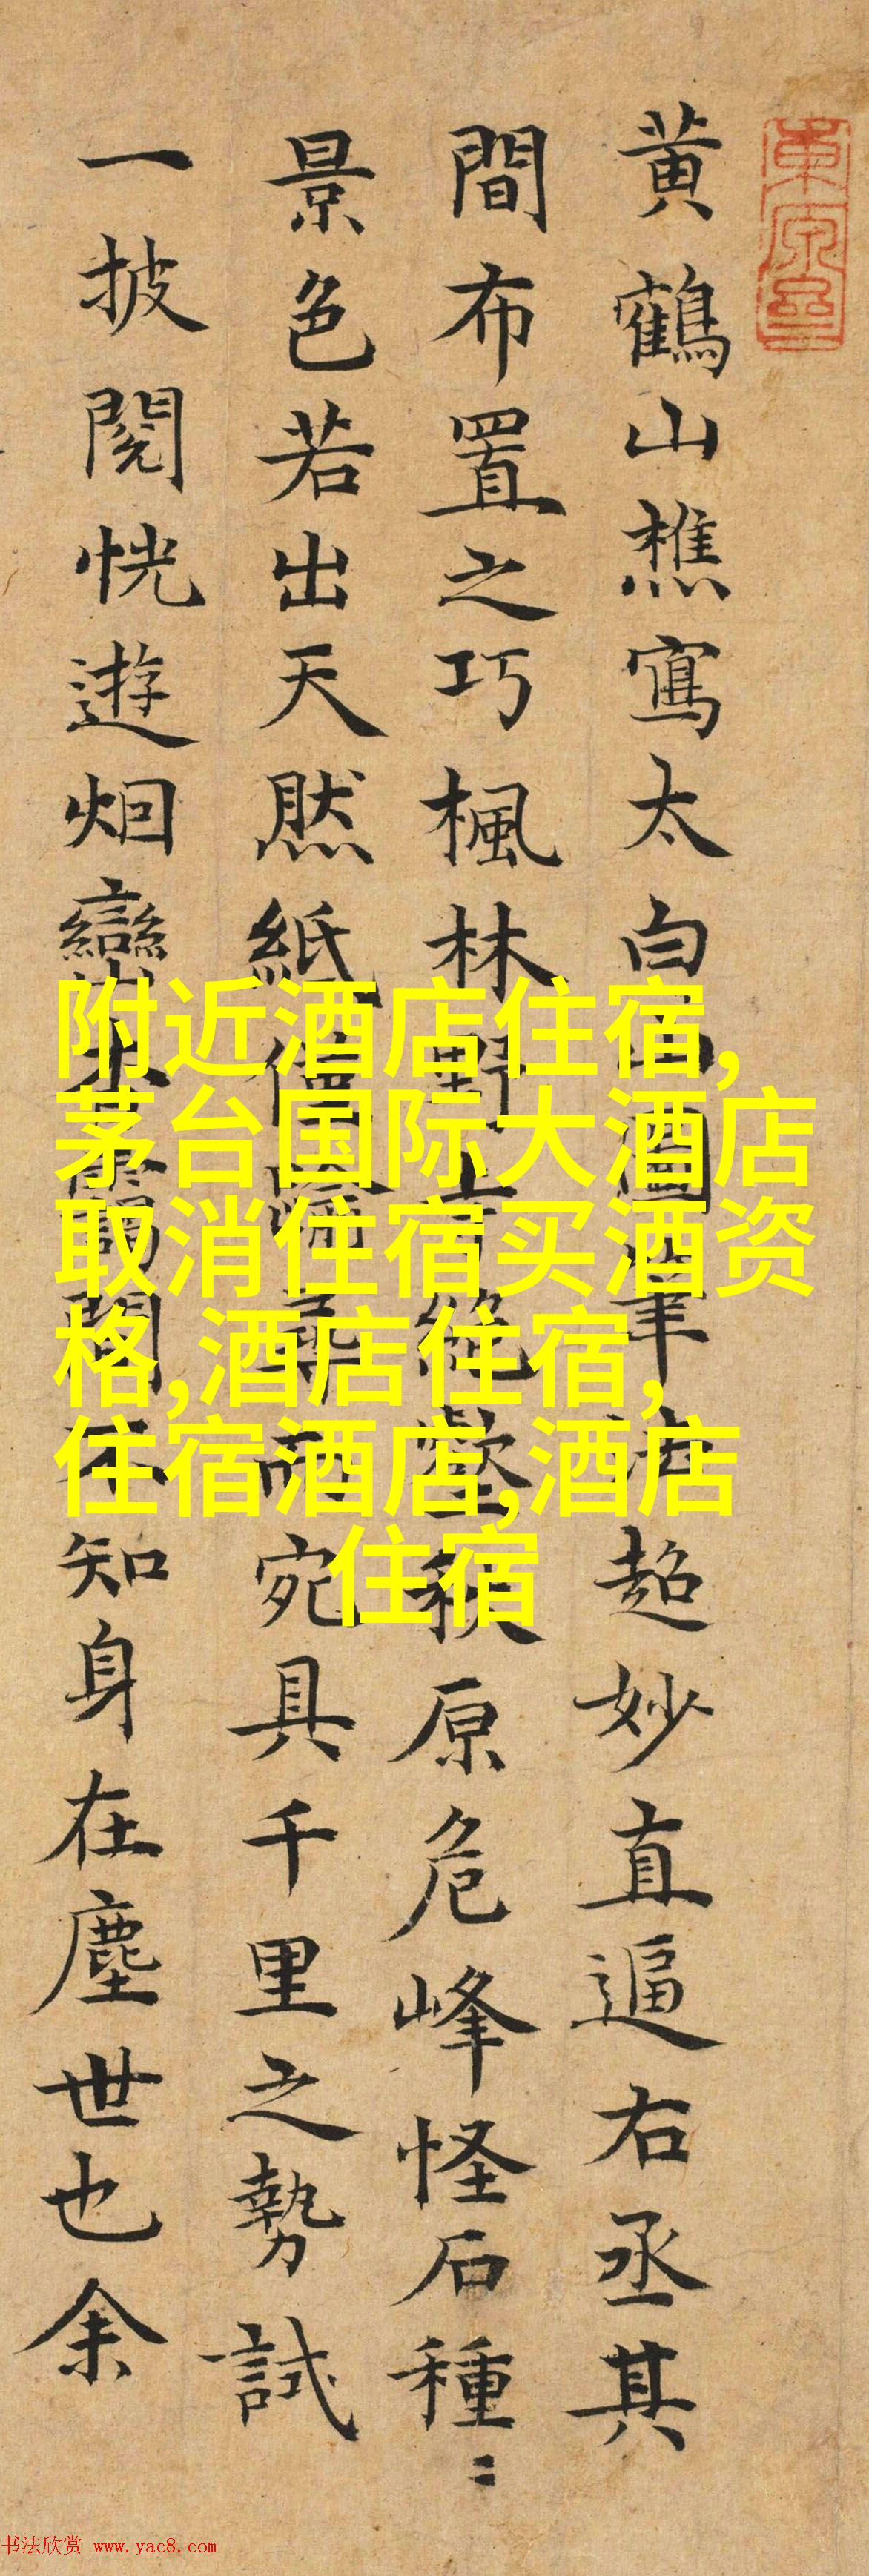 黄鶴山樵寫太白山圖筆法超妙直逼右丞其
間布置之巧楓林野寺絕壑秋原危峰怪石種〻
景色若出天然紙僅尋而宛具千里之勢試
一披閱恍遊烟巒間不知身在塵世也余
附近酒店住宿,
茅台国际大酒店
取消住宿买酒资
格,酒店住宿,
住宿酒店,酒店
住宿
书法欣赏 www.yac8.com